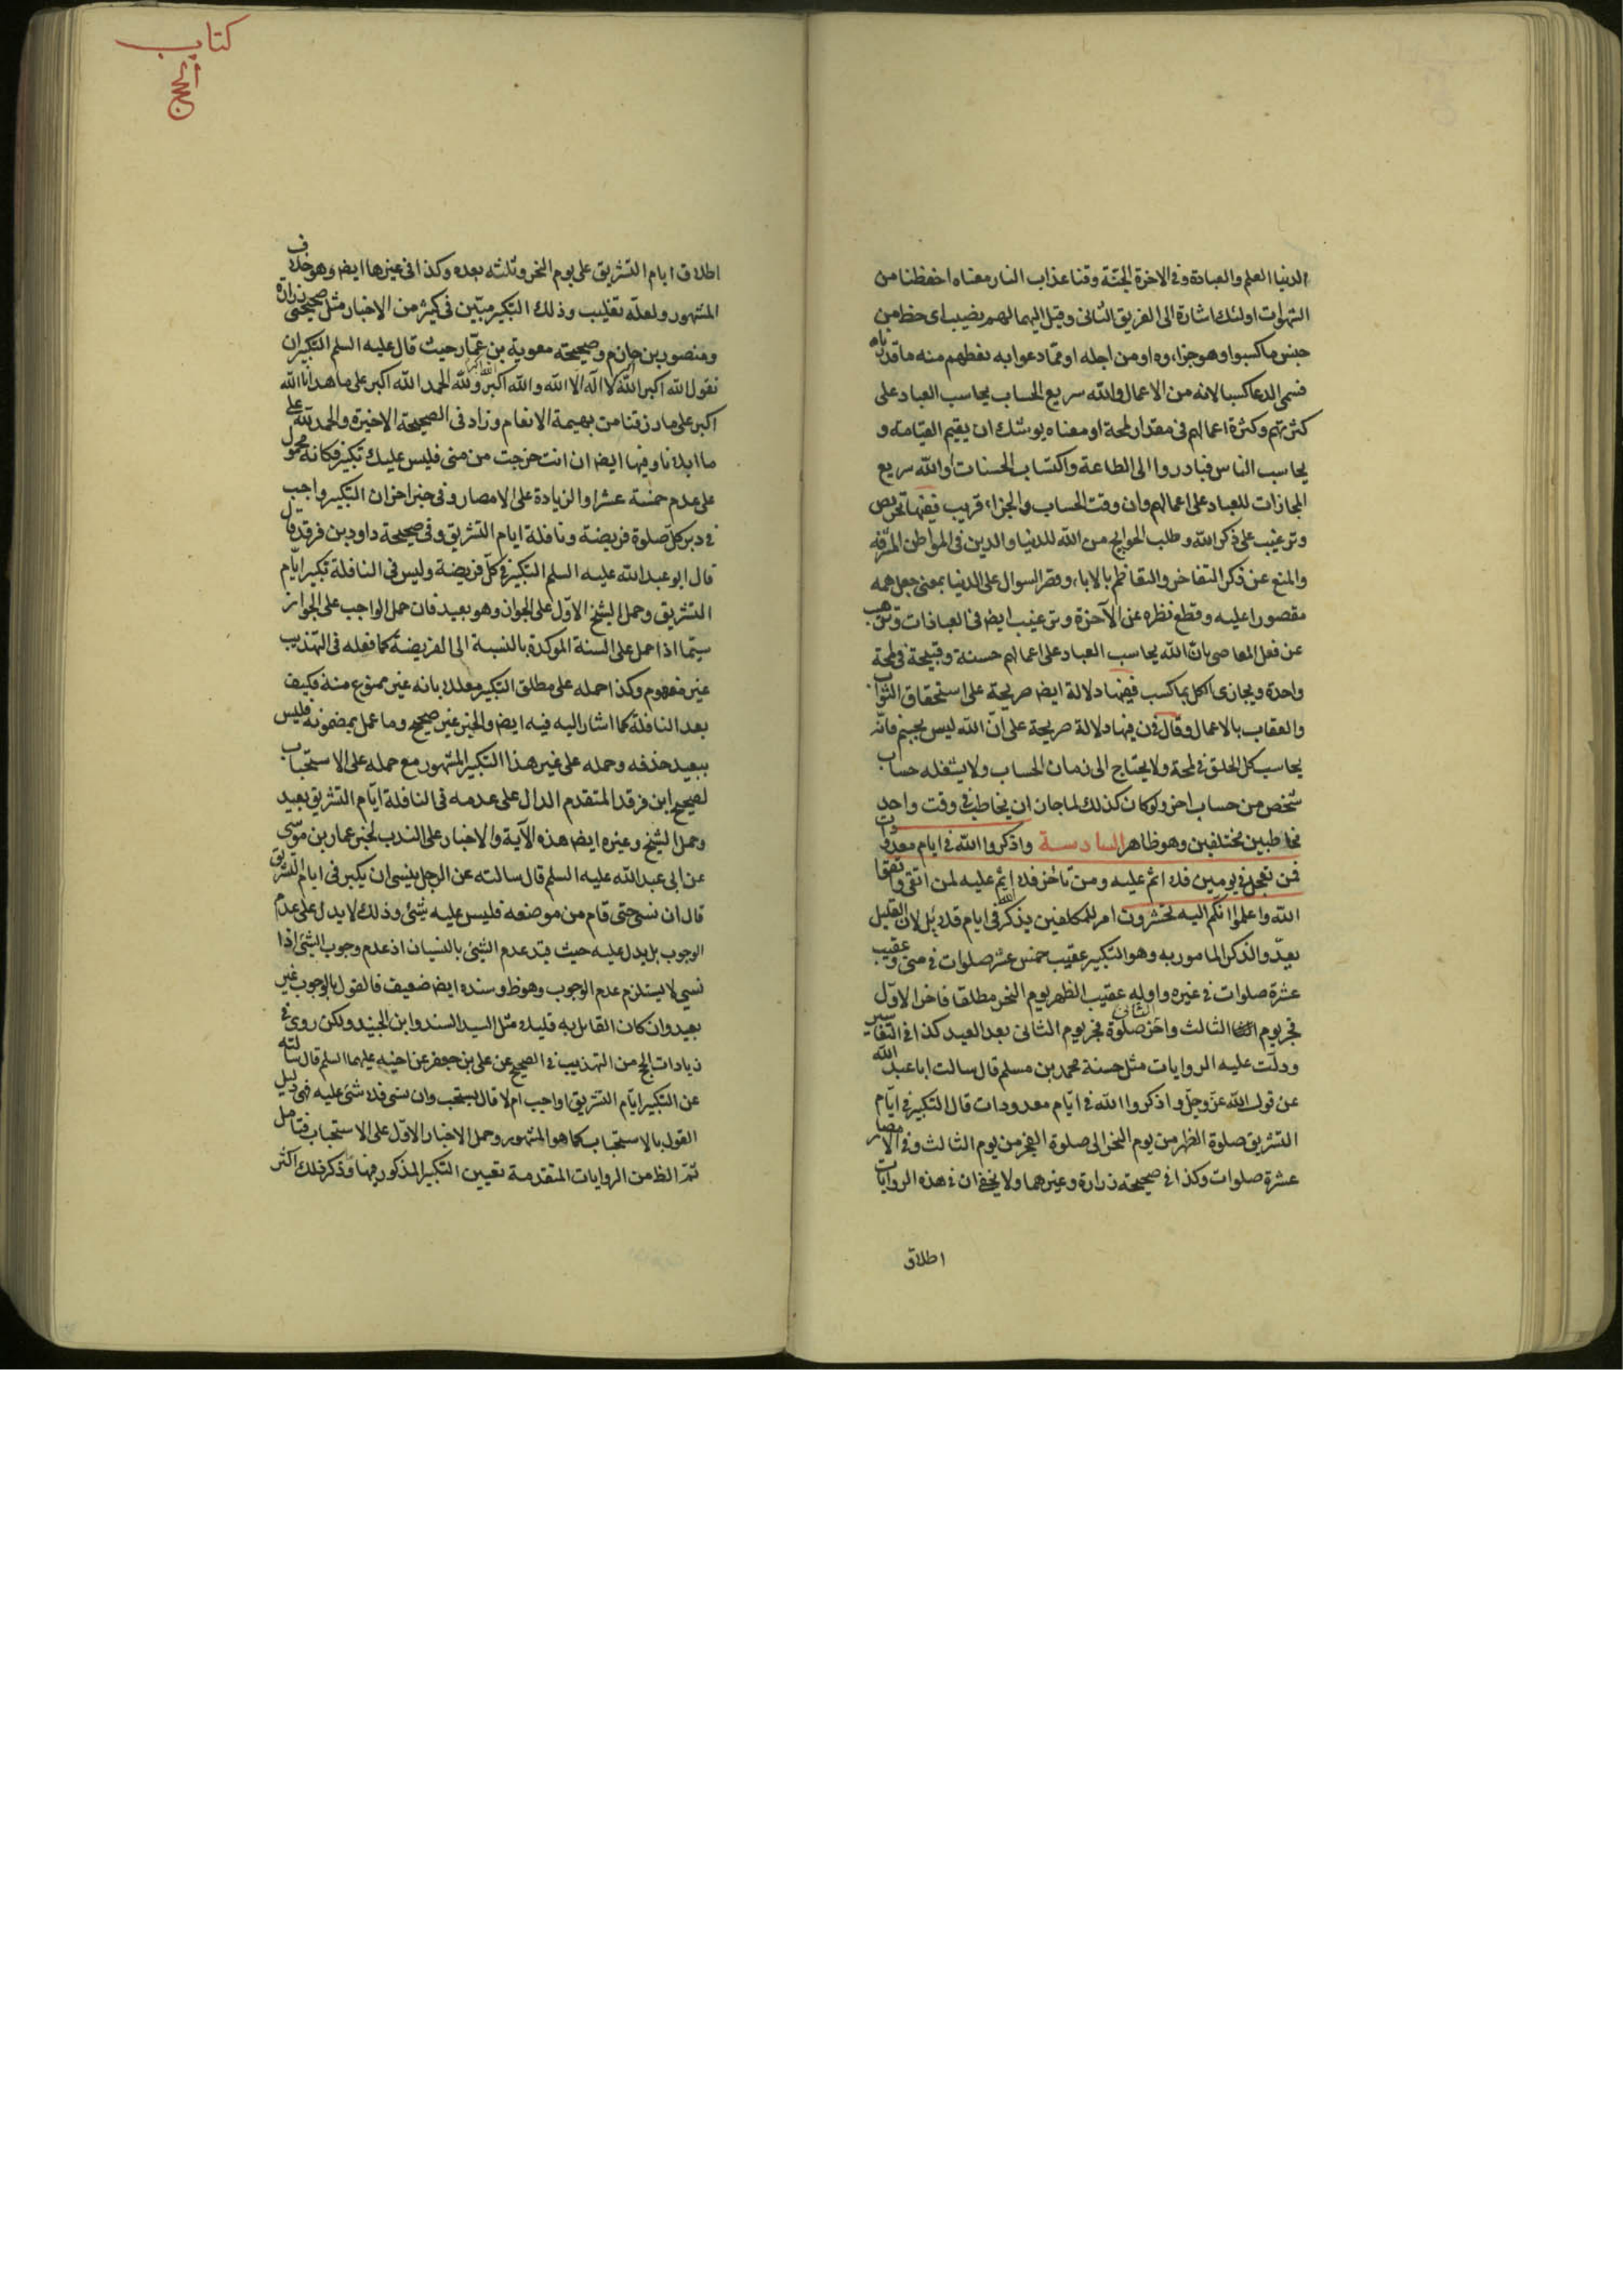 الدنيا العلم والعبادة وفى الاخرة الجنّة وقنا عذاب النار معناه احفظنا من
الشهوات اولئك اشارة الى الفريق الثانى وقيل اليهما لهم نصيب اى حظ من
جنس ما كسبوا وهو جزاءه او من اجله او ممّا دعوا به نعطهم منه ما قدرناه
فسمى الدعا كسبا لانه من الاعمال والله سريع الحساب يحاسب العباد على
كثرتهم وكثرة اعمالهم فى مقدار لمحة او معناه يوشك ان يقيم القيامة و
يحاسب الناس فبادروا الى الطاعة واكتساب الحسنات او الله سريع
المجازات للعباد على اعمالهم وان وقت الحساب والجزاء قريب ففيها تحريص
وترغيب على ذكر الله وطلب الحوايج من الله للدنيا والدين فى المواطن المشرّفة
والمنع عن ذكر التفاخر والتعاظم بالاباء وقصر السوال على الدنيا بمعنى جعل همه
مقصورا عليه وقطع نظره عن الآخرة وترغيب ايضا فى العبادات وترهيب
عن فعل المعاصى بانّ الله يحاسب العباد على اعمالهم حسنة وقبيحة فى لمحة
واحدة ويجازى الكل بما كسب ففيها دلالة ايضا صريحة على استحقاق الثواب
والعقاب بالاعمال وقال فى ن فيها دلالة صريحة على انّ الله ليس بجسم فانّه
يحاسب كل الخلق فى لمحة ولا يحتاج الى زمان الحساب ولا يشغله حساب
شخص من حساب اخر ولو كان كذلك لما جاز ان يخاطب فى وقت واحد
مخاطبين مختلفين وهو ظاهر السادسة واذكروا الله فى ايام معدودات
فمن تعجل فى يومين فلا اثم عليه ومن تأخر فلا اثم عليه لمن اتقى واتقوا
الله واعلموا انكم اليه تحشرون امر للمكلفين بذكر الله فى ايام قلايل لان القليل
يعدّ والذكر المامور به وهو التكبير عقيب خمس عشر صلوات فى منى وعقيب
عشرة صلوات فى غيره واوله عقيب الظهر يوم النحر مطلقا فاخر الاوّل
فجر يوم الثالث واخر صلوة فجر يوم الثانى الثانى بعد العيد كذا فى التفاسير
ودلّت عليه الروايات مثل حسنة محمد بن مسلم قال سالت ابا عبد الله
عن قول الله عزّ وجلّ واذكروا الله فى ايّام معدودات قال التكبير فى ايّام
التشريق صلوة الظهر من يوم النحر الى صلوة الفجر من يوم الثالث وفى الامصار
عشرة صلوات وكذا فى صحيحة زرارة وغيرهما ولا يخفى ان فى هذه الروايات
اطلاق
كتاب
الحج
اطلاق ايام التشريق على يوم النحر وثلثه بعده وكذا فى غيرها ايضا وهو خلاف
المشهور ولعلّه تغليب وذلك التكبير مبّين فى كثير من الاخبار مثل صحيحتى زرارة
ومنصور بن حازم وصحيحة معوية بن عمّار حيث قال عليه السلم التكبير ان
تقول الله اكبر الله اكبر لا اله الا الله والله اكبر الله اكبر ولله الحمد الله اكبر على ما هدانا الله
اكبر على ما رزقنا من بهيمة الانعام وزاد فى الصحيحة الاخيرة والحمد لله على
ما ابلانا وفيها ايضا ان انت خرجت من منى فليس عليك تكبير فكانه محمول
على عدم خمسة عشر او الزيادة على الامصار وفى خبر اخر ان التكبير واجب
فى دبر كلّ صلوة فريضة ونافلة ايام التشريق وفى صحيحة داود بن فرقد قال
قال ابو عبد الله عليه السلم التكبير فى كلّ فريضة وليس فى النافلة تكبير ايّام
التشريق وحمل الشيخ الاوّل على الجواز وهو بعيد فان حمل الواجب على الجواز
سيّما اذا حمل على السنة الموكدة بالنسبة الى الفريضة كما فعله فى التهذيب
غير مفهوم وكذا حمله على مطلق التكبير معللا بانه غير ممنوع منه فكيف
بعد النافلة كما اشار اليه فيه ايضا والخبر غير صحيح وما عمل بمضمونه فليس
ببعيد حذفه وحمله على غير هذا التكبير المشهور مع حمله على الاستحباب
لصحيح ابن فرقد المتقدم الدال على عدمه فى النافلة ايّام التشريق بعيد
وحمل الشيخ وغيره ايضا هذه الآية والاخبار على الندب لخبر عمار بن موسى
عن ابى عبد الله عليه السلم قال سالته عن الرجل ينسى ان يكبر فى ايام التشريق
قال ان نسى حتى قام من موضعه فليس عليه شئ وذلك لا يدل على عدم
الوجوب بل يدل عليه حيث قيد عدم الشئ بالنسيان اذ عدم وجوب الشئ اذا
نسى لا يستلزم عدم الوجوب وهو ظ وسنده ايضا ضعيف فالقول بالوجوب غير
بعيد وان كان القائل به قليلا مثل السيد السند وابن الجنيد ولكن روى فى
زيادات الحج من التهذيب فى الصحيح عن على بن جعفر عن اخيه عليهما السلم قال سالته
عن التكبير ايّام التشريق اواجب ام لا قال يستحب وان نسى فلا شئ عليه فهى دليل
القول بالاستحباب كما هو المشهور وحمل الاخبار الاوّل على الاستحباب فتامل
ثمّ الظ من الروايات المتقدمة تعيين التكبير المذكور فيها وذكر ذلك اكثر